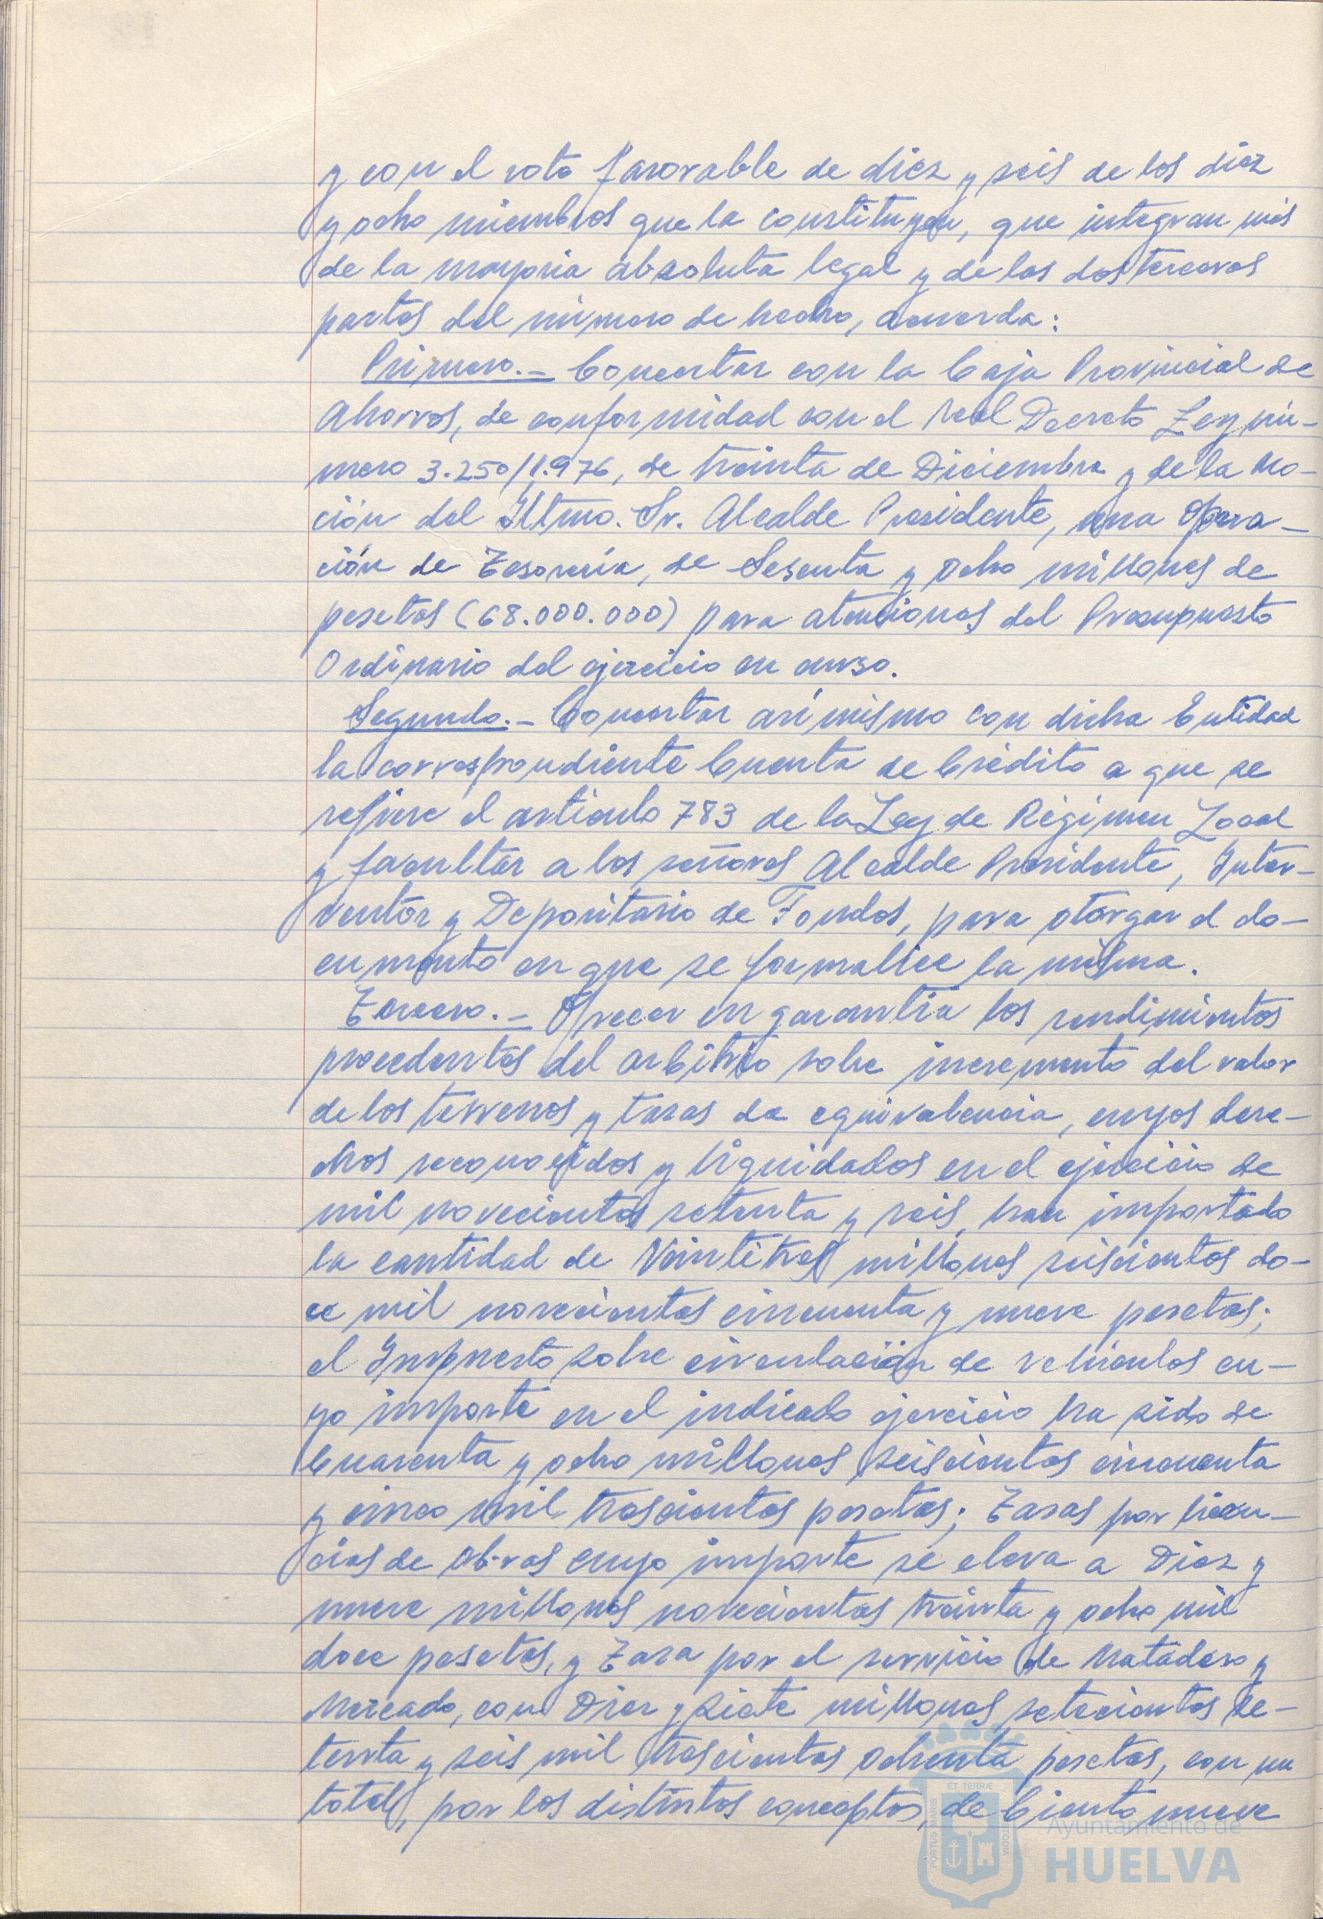 y con el voto favorable de diez y seis de los diez
y ocho miembros que la constituyen, que integran más
de la mayoría absoluta legal y de las dos terceras
partes del número de hecho, acuerda:
Primero.- Concertar con la Caja Provincial de
Ahorros, de conformidad con el Real Decreto Ley nú-
mero 3.250/1.976, de treinta de Diciembre y de la Mo-
ción del Iltmo. Sr. Alcalde Presidente, una Opera-
ción de Tesorería, de Sesenta y ocho millones de
pesetas (68.000.000) para atenciones del Presupuesto
Ordinario del ejercicio en curso.
Segundo.- Concertar asimismo con dicha Entidad
la correspondiente Cuenta de Crédito a que se
refiere el artículo 783 de la Ley de Régimen Local
y facultar a los señores Alcalde Presidente, Inter-
ventor y Depositario de Fondos, para otorgar el do-
cumento en que se formalice la misma.
Tercero.- Ofrecer en garantía los rendimientos
procedentes del arbitrio sobre incremento del valor
de los terrenos y tasas de equivalencia, cuyos dere-
chos reconocidos y liquidados en el ejercicio de
mil novecientos setenta y seis, han importado
la cantidad de Veintitres millones seiscientos do-
ce mil novecientos cincuenta y nueve pesetas;
el Impuesto sobre circulación de vehículos cu-
yo importe en el indicado ejercicio ha sido de
Cuarenta y ocho millones seiscientos cincuenta
y cinco mil trescientos pesetas; Tasas por licen-
cias de obras cuyo importe se eleva a Diez y
nueve millones novecientos treinta y ocho mil
doce pesetas, y Tasa por el servicio de Matadero y
Mercado, con Diez y siete millones setecientos se-
tenta y seis mil trescientos ochenta pesetas, con un
total, por los distintos conceptos, de Ciento nueve
PORTUS MARIS ET TERRAE CUSTODIA
Ayuntamiento de
HUELVA